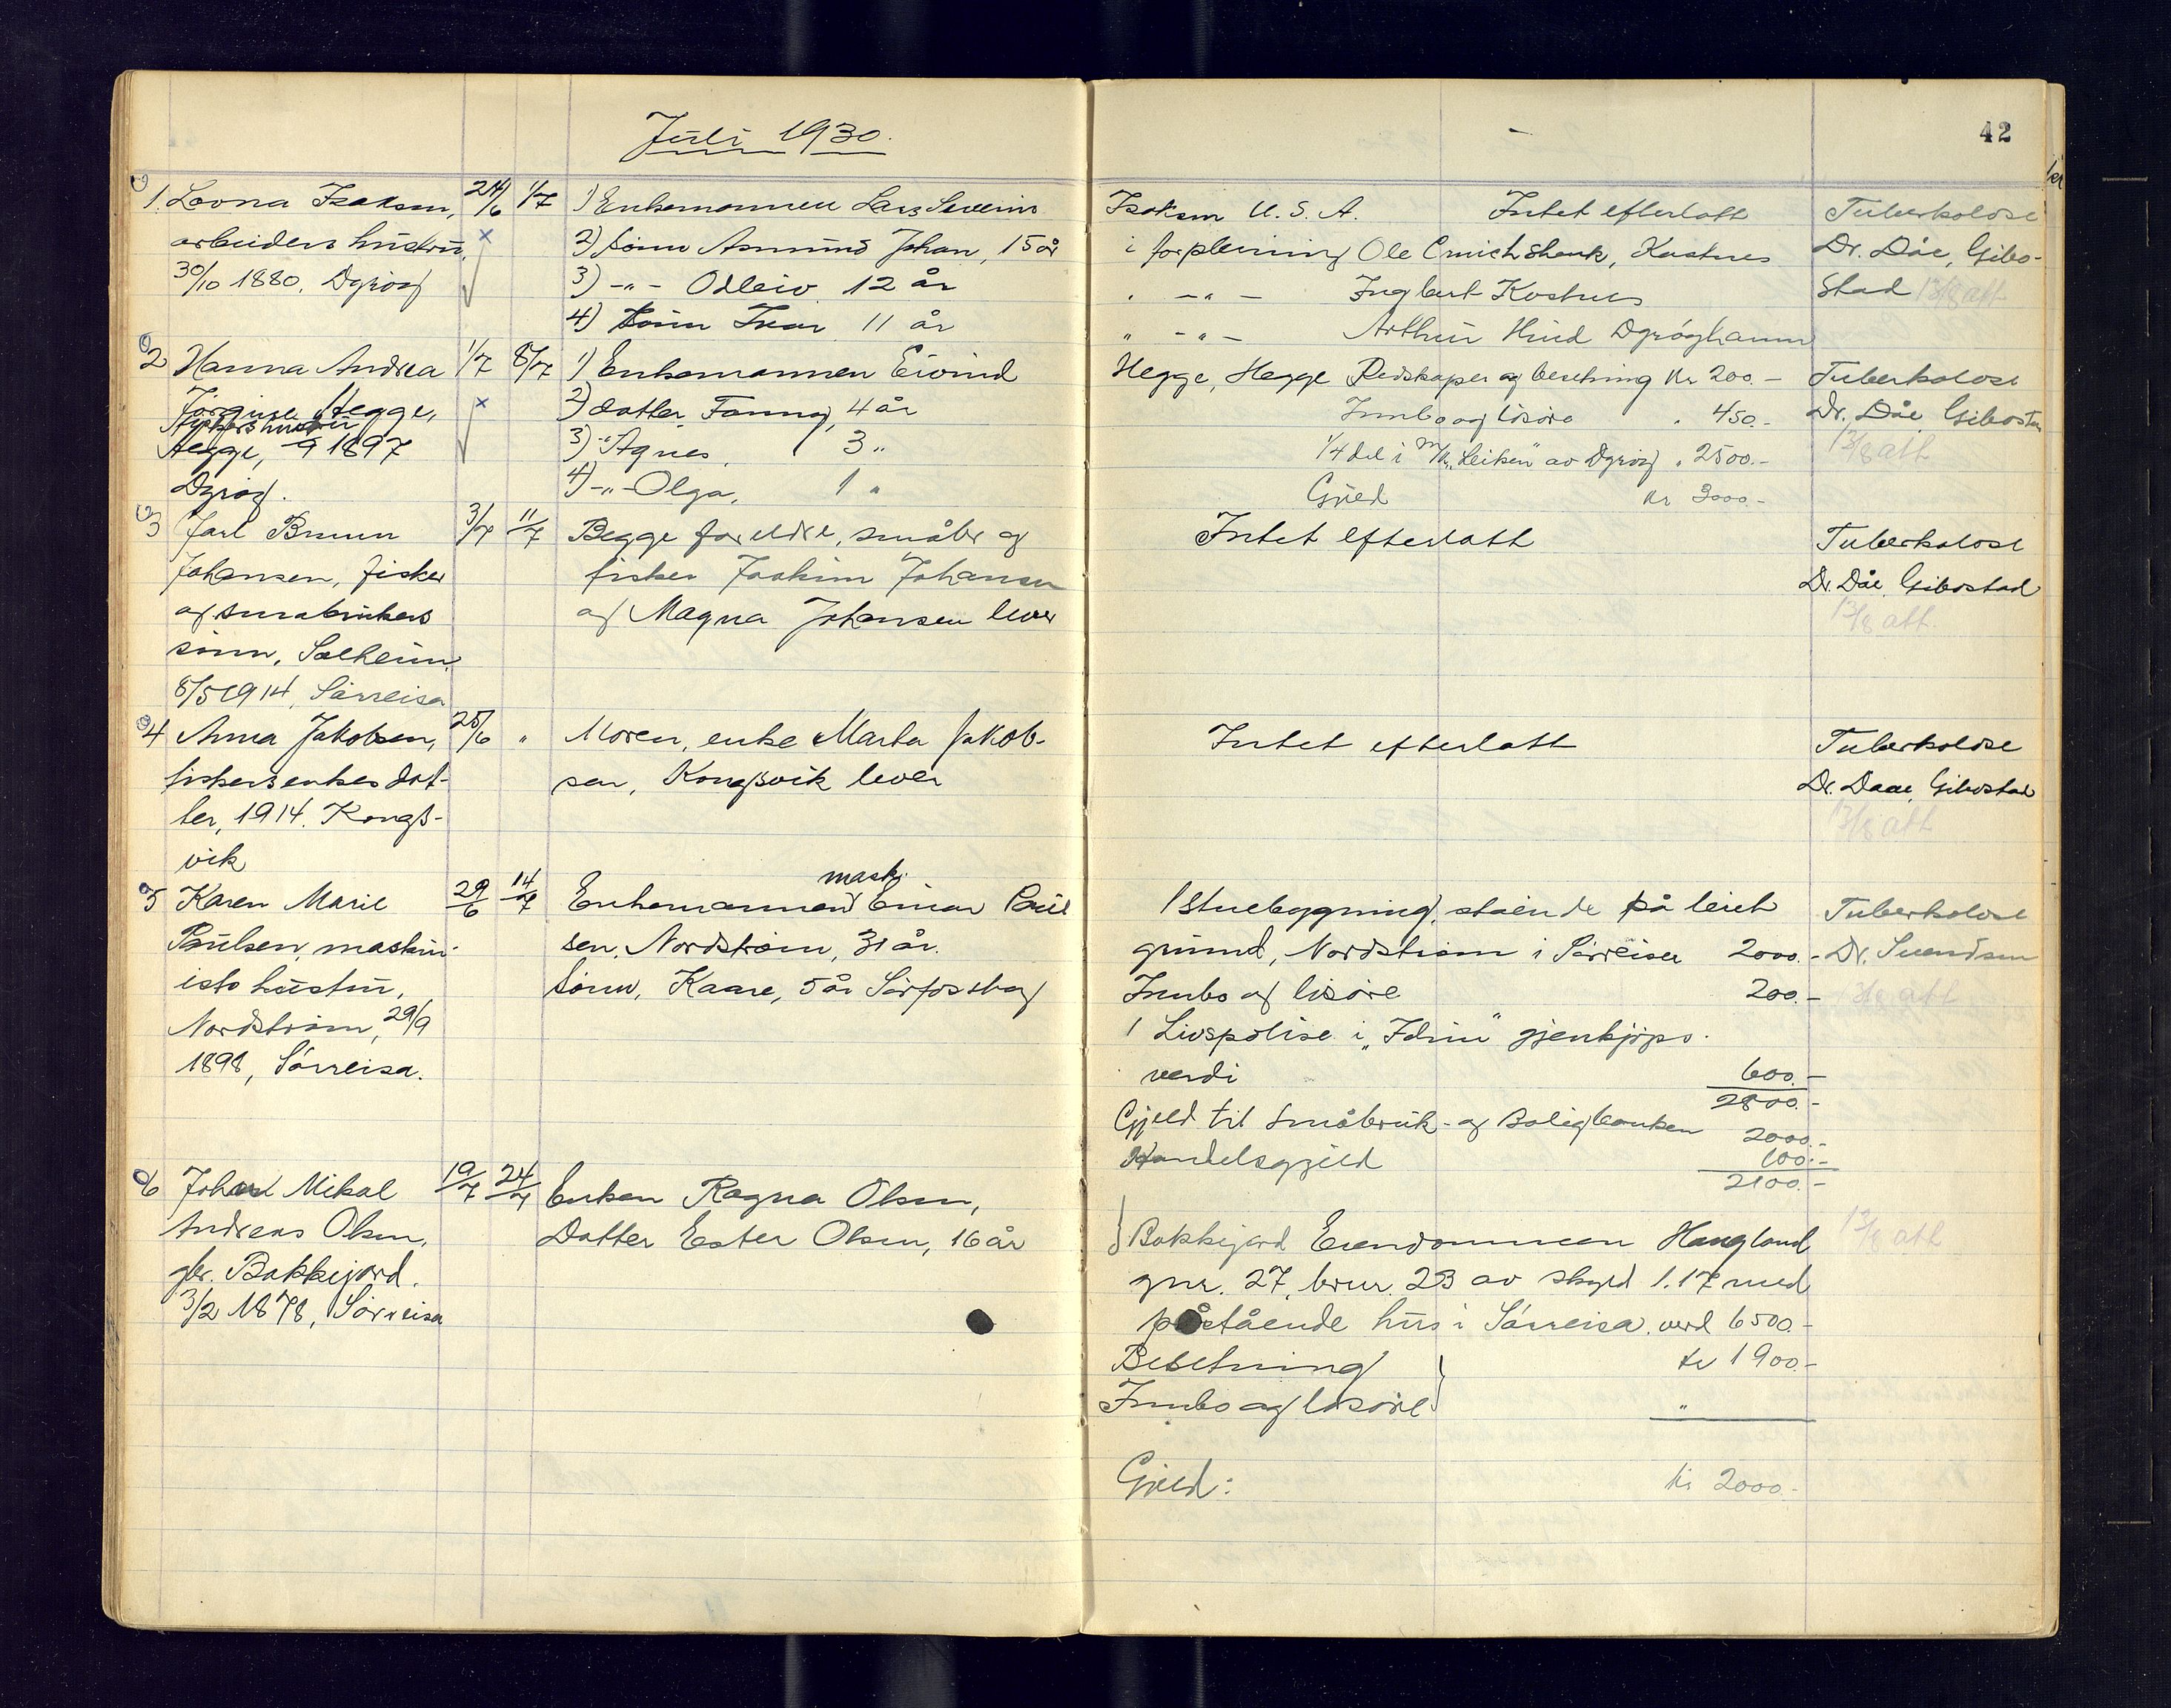 42
Juli 1930.
1. Lovna Isaksen, 24/6 1/7 1) Enkemannen Lars Severin Isaksen U.S.A. Intet efterlatt Tuberkolose
arbeiders hustru, x 2) sønn Asmund Johan, 15 år i forpleining Ole Kastnes Dr. Dåe, Gibo-
30/10 1880. Dyrøy 3) -"- Odleiv 12 år " -"- Ingbert Kastnes stad 13/8 att
4) sønn Ivar 11 år " -"- Arthur Hind Dyrøyhamn
2 Hanna Andrea 1/7 8/7 1) Enkemannen Eivind Hegge, Hegge Redskaper og besetning kr 200.-  Tuberkolose
Jørgine Hegge, x 2) datter Fanny, 4 år Innbo og løsøre " 450.- Dr. Dåe Gibostad
fiskers hustru
Hegge, 1897 3) -"- Agnes, 3 " 1/4 del i M/k "Leiken" av Dyrøy " 2500.- 13/8 att
Dyrøy. 4) -"- Olga, 1 " Gjeld kr 3000.-
3 Jarl Bruun 3/7 11/7 Begge foreldre, småbr og Intet efterlatt Tuberkolose
Johansen, fisker fisker Joakim Johansen Dr. Dåe, Gibostad
og småbrukers og Magna Johansen lever 13/8 att.
sønn, Solheim,
8/5 1914, Sørreisa
4 Anna Jakobsen, 25/6 " Moren, enke Marta Jakob- Intet efterlatt Tuberkolose
fiskers enkes dat- sen, Kongsvik lever Dr. Daae, Gibostad
ter, 1914. Kongs- 13/8 att
vik
5 Karen Marie 29/6 14/7 Enkemannen mask. Einar Paul 1 stuebygning, stående på leiet Tuberkolose
Paulsen, maskin- sen, Nordstrøm, 31 år. grunn, Nordstrøm i Sørreisa 2000.- Dr. Svendsen
ists hustru, Sønn, Kaare, 5 år Innbo og løsøre 200.- 13/8 att
Nordstrøm, 29/9 1 Livspolise i "Idun" gjenkjøps-
1898, Sørreisa. verdi 600.-
2800.-
Gjeld til Småbruk- og Boligbanken 2000.-
Handelsgjeld 100.-
2100.-
6 Johan Mikal 19/7 24/7 Enken Ragna Olsen,
Andreas Olsen, Datter Ester Olsen, 16 år Bakkejord Eiendommen Haugland 13/8 att
gbr. Bakkejord. gnr. 27, brnr. 23 av skyld 1.17 med
3/2 1878, Sørreisa påstående hus i Sørreisa. verd 6500.-
Besetning kr 1900.-
Innbo og løsøre "
Gjeld: kr 2000.-